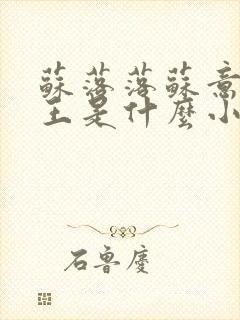 蘇落落蘇意
王是什麼小
石魯慶